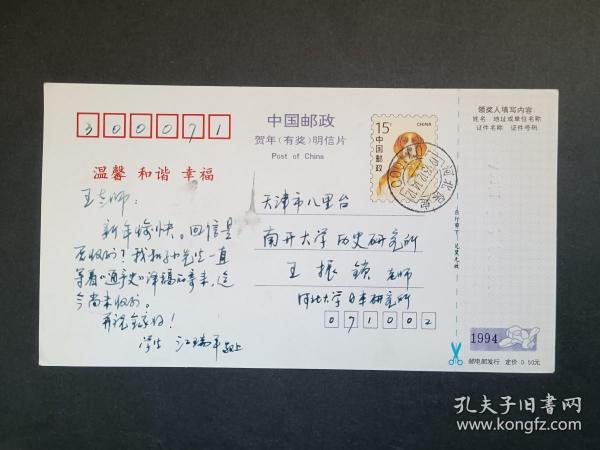 300071
中国邮政
贺年(有奖)明信片
Post of China
15分
CHINA
中国邮政
领奖人填写内容:
姓名 地址或单位名称
证件名称 证件号码
温馨 和谐 幸福
王老师:
新年愉快。回信是
否收到?我和孙先生一直
等着《通产史》译稿的寄来,迄
今尚未收到。
再祝 全家好!
学生 江瑞平 敬上
天津市八里台
南开大学历史研究所
王振锁 老师
河北大学日本研究所
071002
1994
邮电部发行 定价 0.50元
孔夫子旧书网
www.kongfz.com